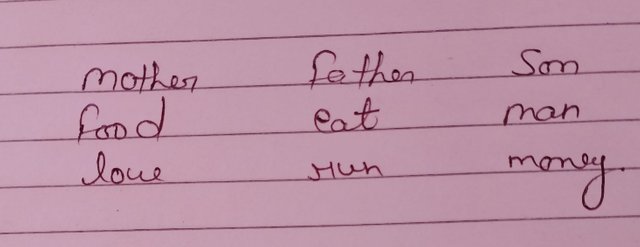 mother father Son
food eat man
love run money.